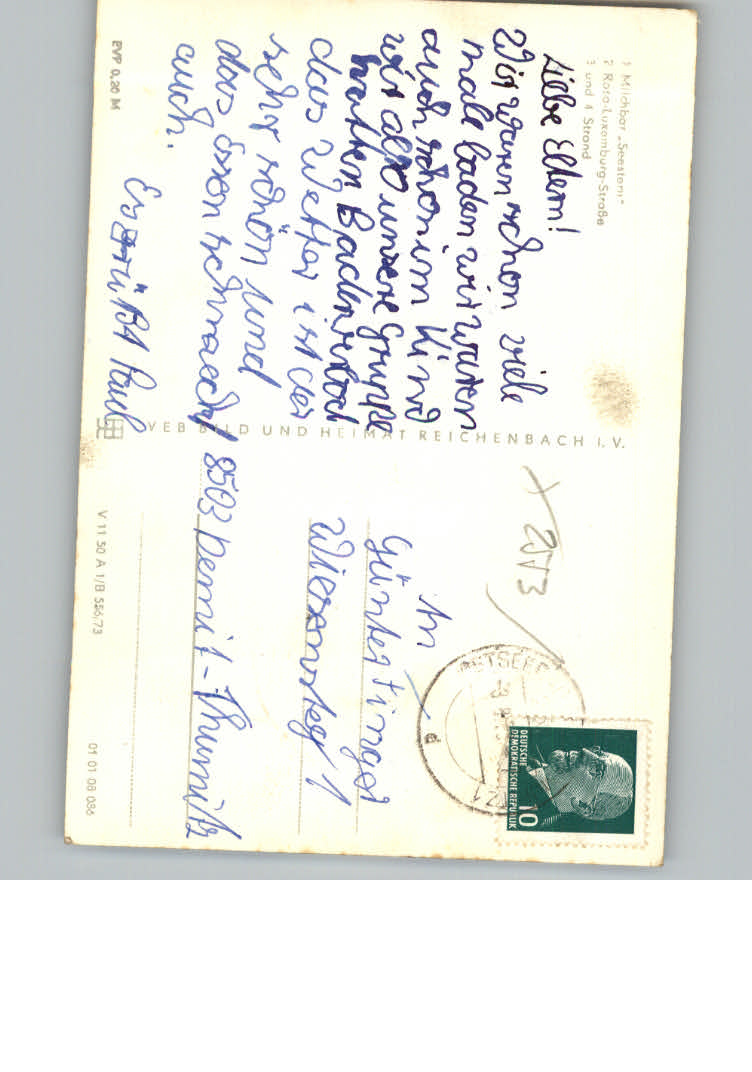 1 Milchbar „Seestern“
2 Rosa-Luxemburg-Straße
3 und 4 Strand
Liebe Eltern!
Wir waren schon viele
male baden wir waren
auch schon im Kino
wir also unsere Gruppe
hatten Badeverbot
das Wetter ist der
sehr schön und
das Essen schmeckt
auch.
Es grüßt Paul
EVP 0,20 M
VEB BILD UND HEIMAT REICHENBACH I. V.
V 11 50 A 1/B 556/73
01 01 08 086
An
Günter
Wiesensteg 1
8503 Demitz-Thumitz
DEUTSCHE
DEMOKRATISCHE REPUBLIK
10